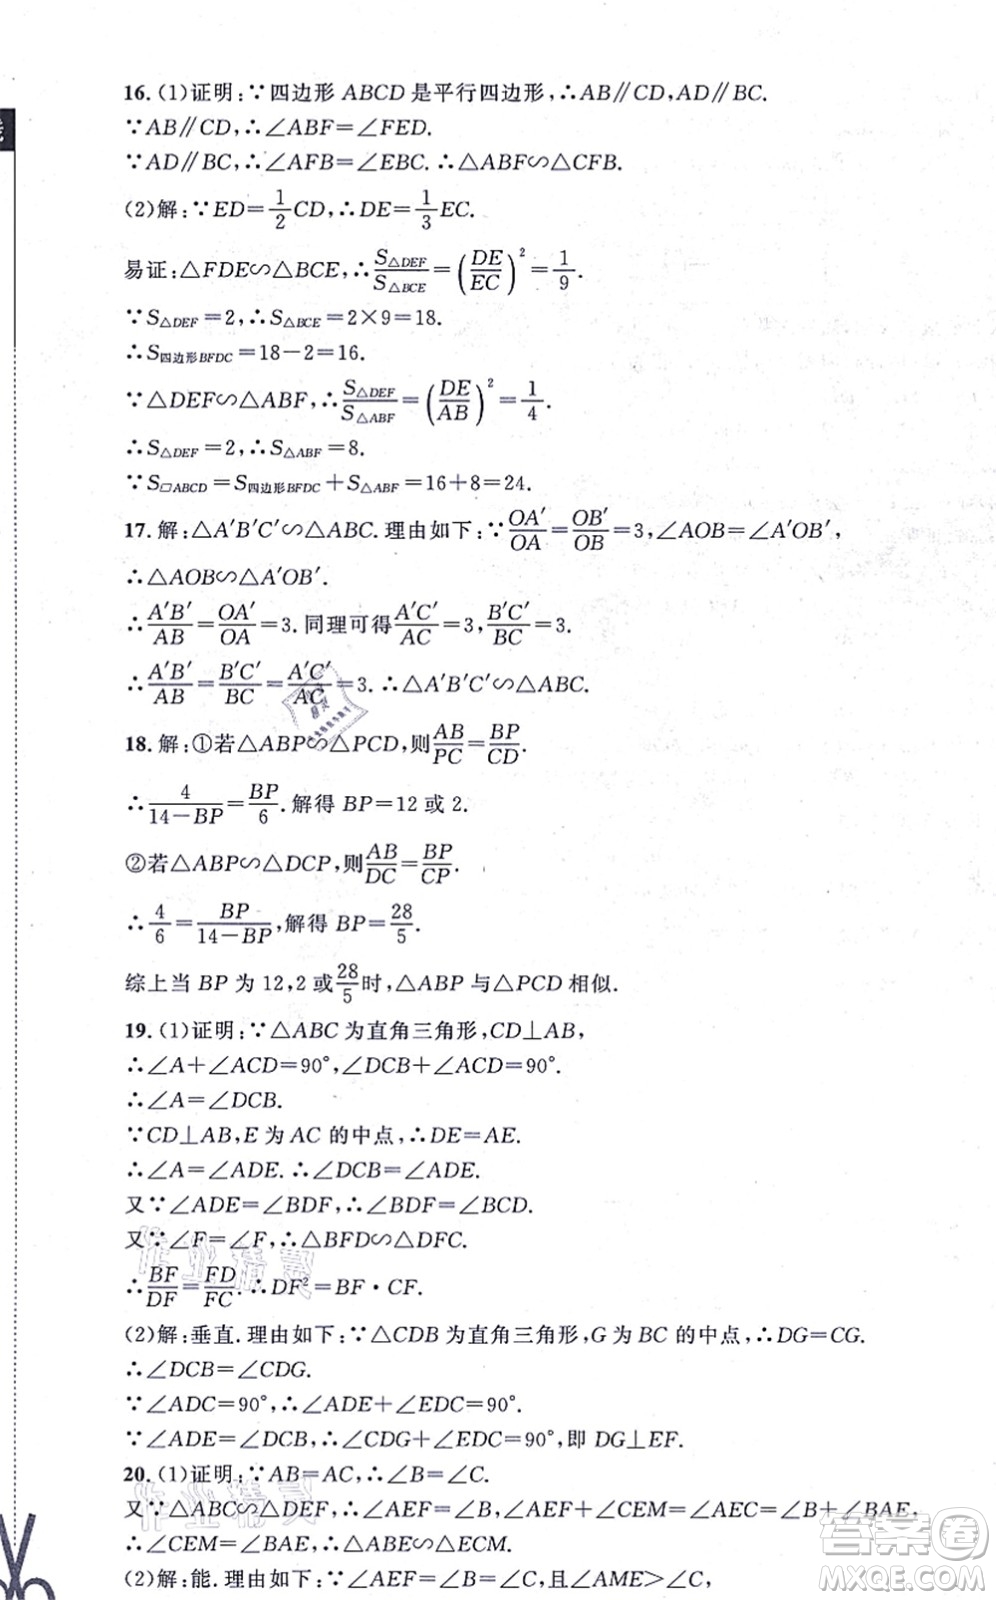 16.(1)证明:∵四边形ABCD是平行四边形,∴AB∥CD,AD∥BC.
∵AB∥CD,∴∠ABF=∠FED.
∵AD∥BC,∴∠AFB=∠EBC.∴△ABF∽△CFB.
(2)解:∵ED=1/2CD,∴DE=1/3EC.
易证:△FDE∽△BCE,∴S△DEF/S△BCE=(DE/EC)²=1/9.
∵S△DEF=2,∴S△BCE=2×9=18.
∴S四边形BFDC=18-2=16.
∵△DEF∽△ABF,∴S△DEF/S△ABF=(DE/AB)²=1/4.
∴S△DEF=2,∴S△ABF=8.
∵S▱ABCD=S四边形BFDC+S△ABF=16+8=24.
17.解:△A′B′C′∽△ABC.理由如下:∵OA′/OA=OB′/OB=3,∠AOB=∠A′OB′,
∴△AOB∽△A′OB′.
∴A′B′/AB=OA′/OA=3.同理可得A′C′/AC=3,B′C′/BC=3.
∴A′B′/AB=B′C′/BC=A′C′/AC=3.∴△A′B′C′∽△ABC.
18.解:①若△ABP∽△PCD,则AB/PC=BP/CD.
∴4/(14-BP)=BP/6.解得BP=12或2.
②若△ABP∽△DCP,则AB/DC=BP/CP.
∴4/6=BP/(14-BP),解得BP=28/5.
综上当BP为12,2或28/5时,△ABP与△PCD相似.
19.(1)证明:∵△ABC为直角三角形,CD⊥AB,
∴∠A+∠ACD=90°,∠DCB+∠ACD=90°.
∴∠A=∠DCB.
∵CD⊥AB,E为AC的中点,∴DE=AE.
∴∠A=∠ADE.∴∠DCB=∠ADE.
又∵∠ADE=∠BDF,∴∠BDF=∠BCD.
又∵∠F=∠F,∴△BFD∽△DFC.
∴BF/DF=FD/FC.∴DF²=BF·CF.
(2)解:垂直.理由如下:∵△CDB为直角三角形,G为BC的中点,∴DG=CG.
∴∠DCB=∠CDG.
∵∠ADC=90°,∴∠ADE+∠EDC=90°.
∵∠ADE=∠DCB,∴∠CDG+∠EDC=90°,即DG⊥EF.
20.(1)证明:∵AB=AC,∴∠B=∠C.
又∵△ABC∽△DEF,∴∠AEF=∠B,∠AEF+∠CEM=∠AEC=∠B+∠BAE,
∴∠CEM=∠BAE.∴△ABE∽△ECM.
(2)解:能.理由如下:∵∠AEF=∠B=∠C,且∠AME>∠C,
作业精灵
作业精灵
答案圈
MXQE.COM